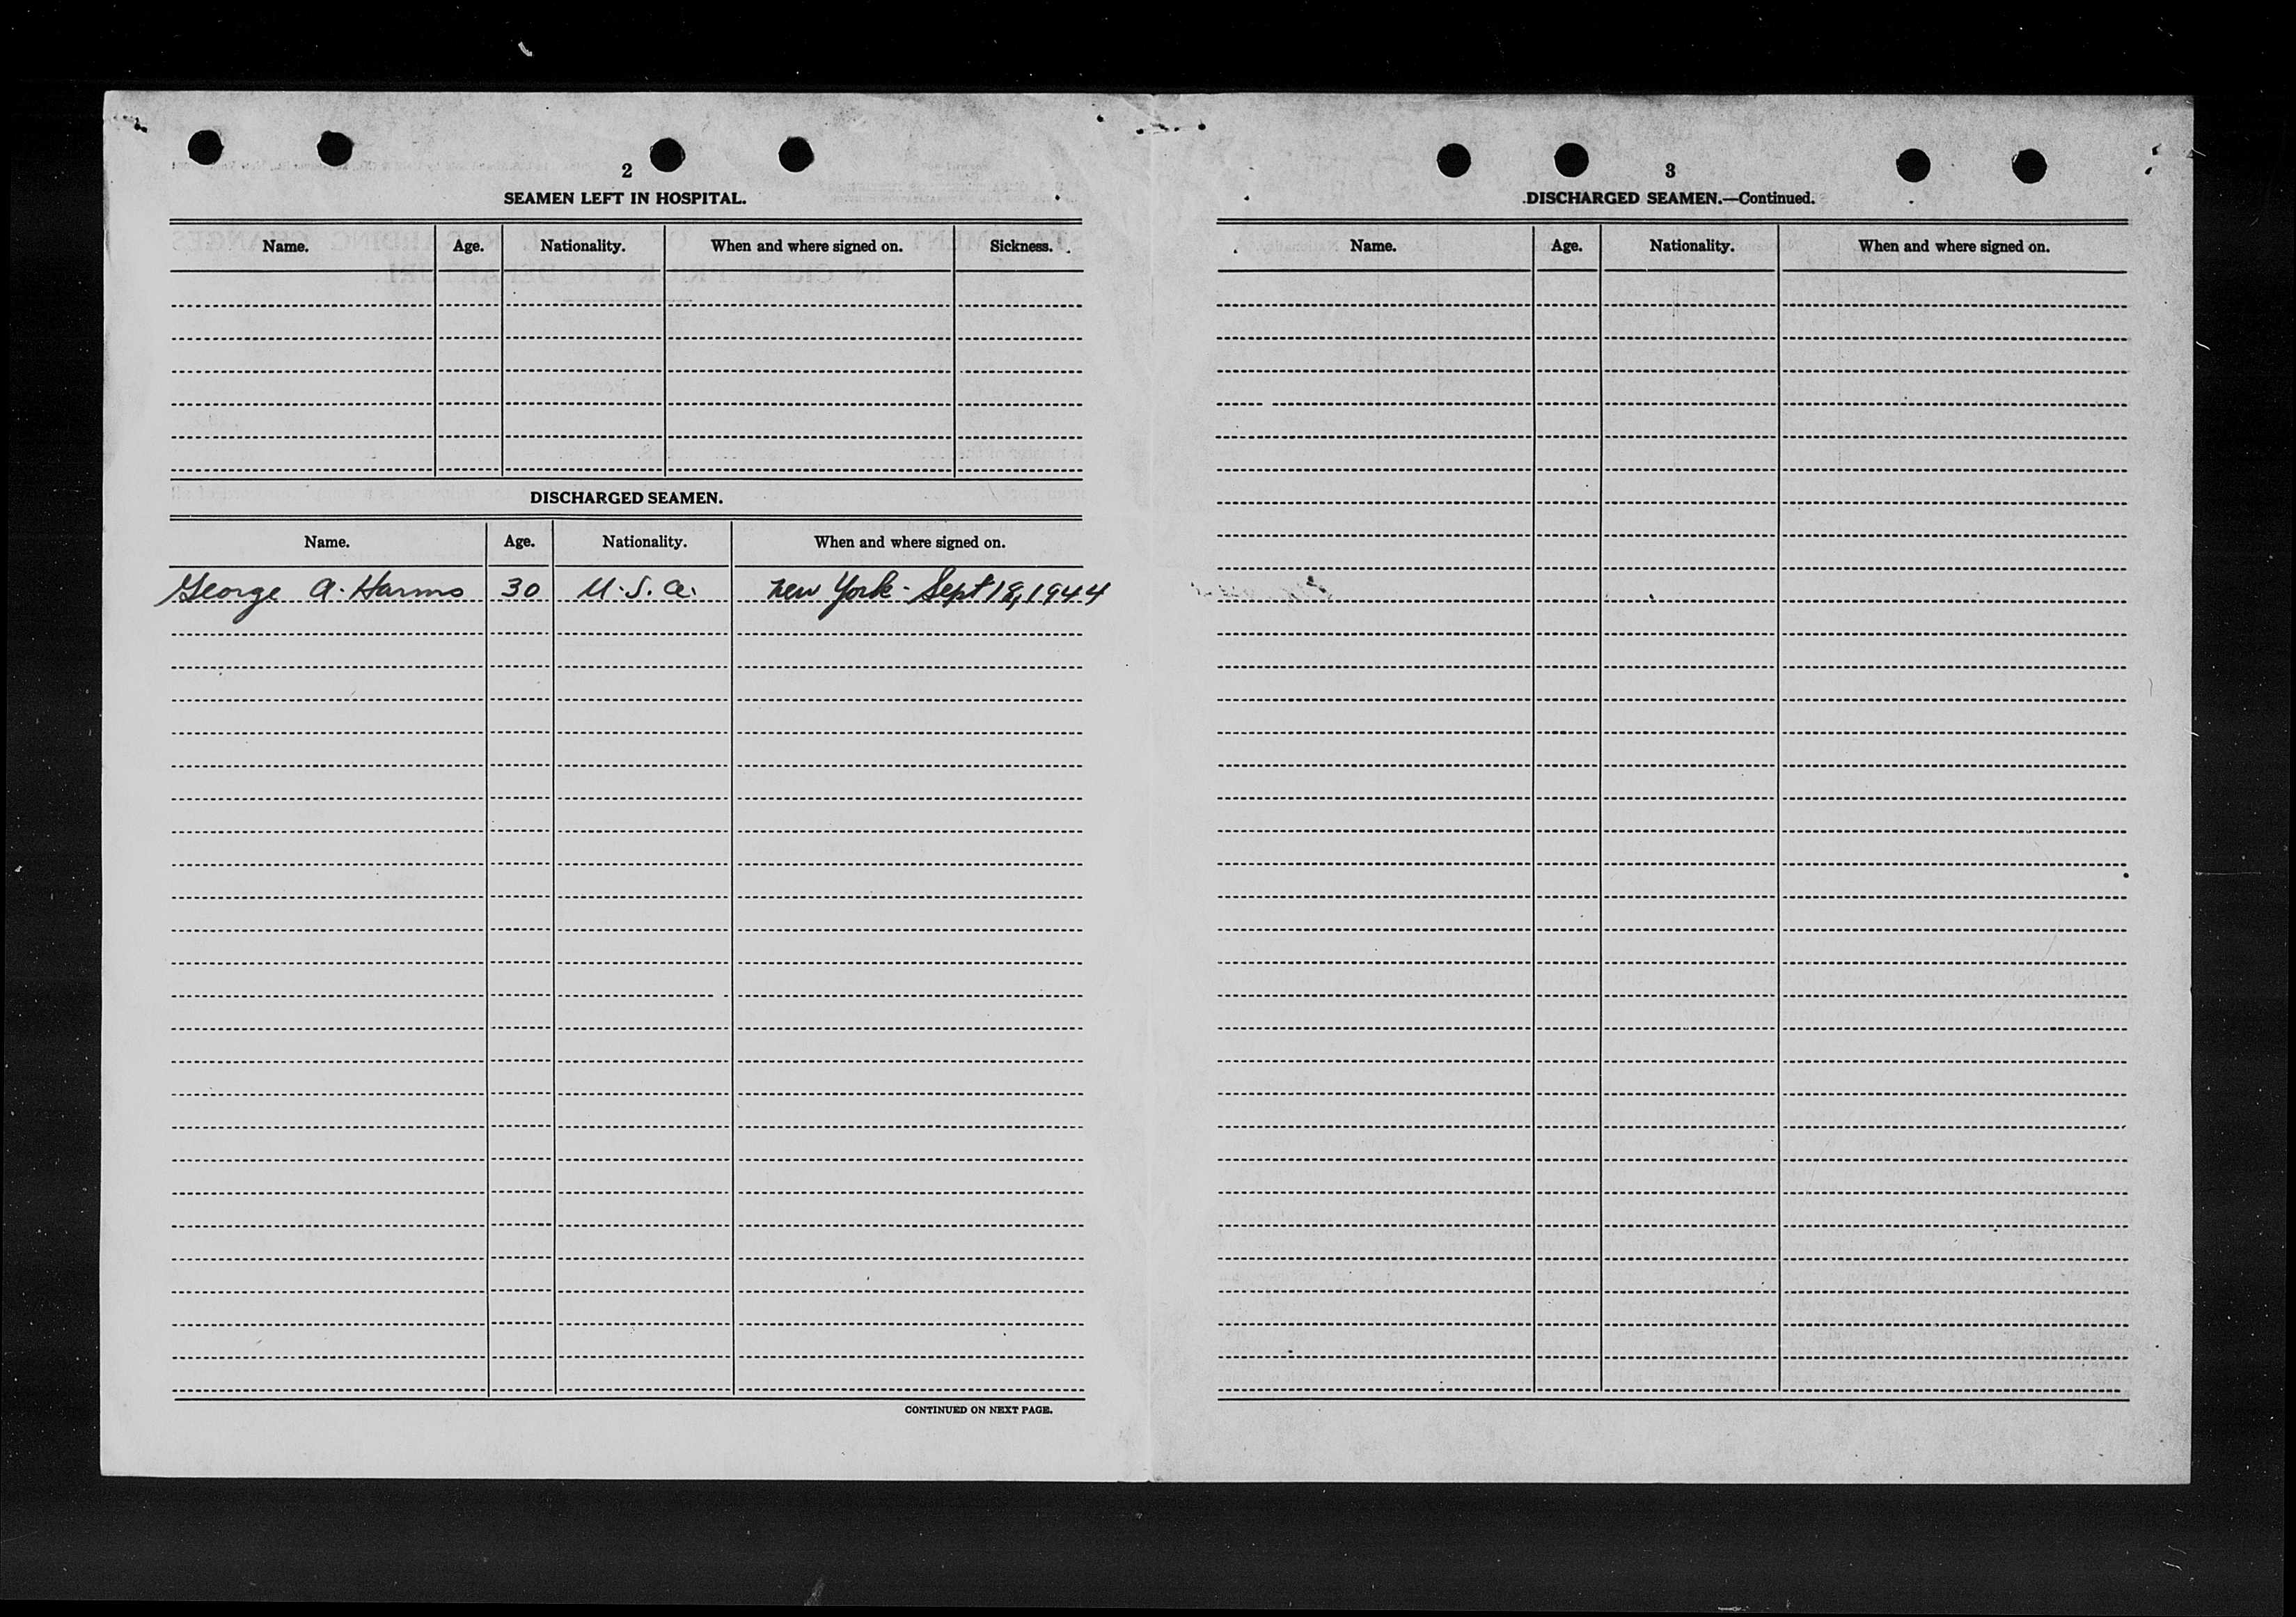 2
SEAMEN LEFT IN HOSPITAL.
Name. Age. Nationality. When and where signed on. Sickness.
DISCHARGED SEAMEN.
Name. Age. Nationality. When and where signed on.
George A. Harms 30 U.S.A. New York - Sept 18, 1944
CONTINUED ON NEXT PAGE.
3
DISCHARGED SEAMEN.—Continued.
Name. Age. Nationality. When and where signed on.